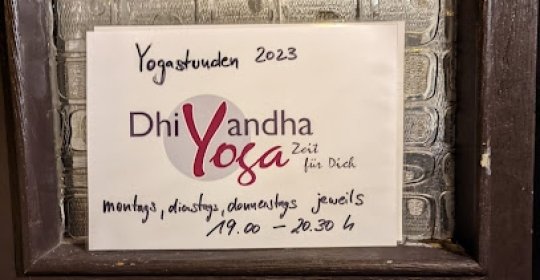 Yogastunden 2023
DhiYandha
Yoga Zeit
für Dich
montags, dienstags, donnerstags jeweils
19.00 - 20.30 h